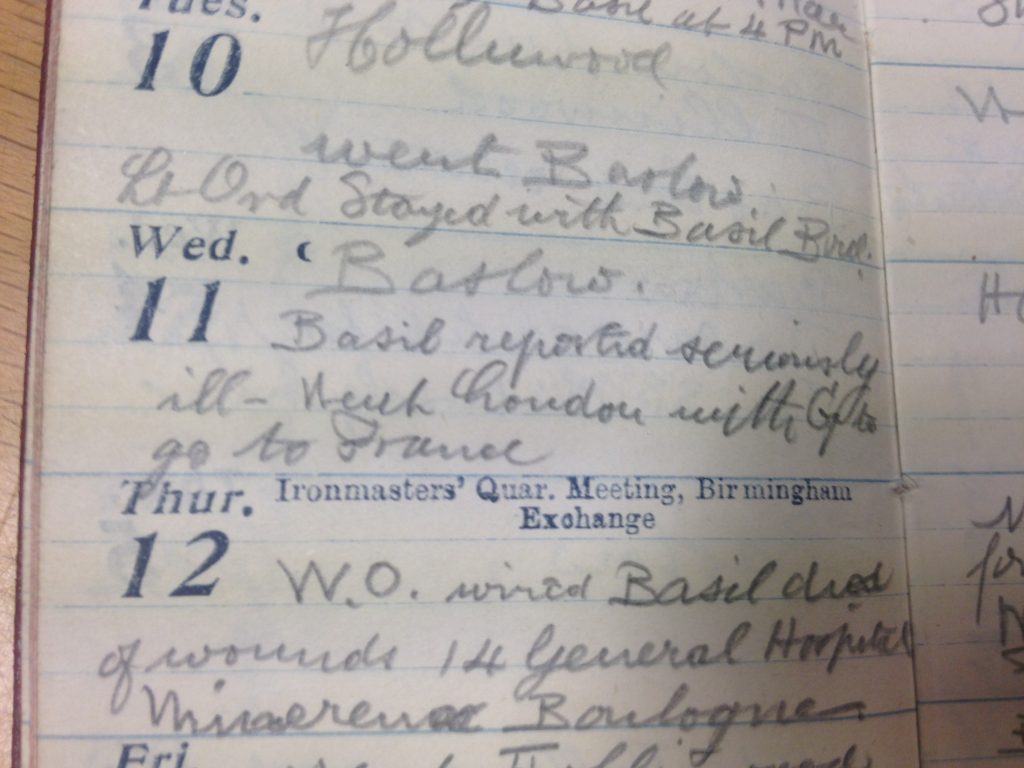 Tues. Basil at 4 PM
10 Hollinwood
went Baslow.
Lt Ord Stayed with Basil Bird.
Wed. ☾ Baslow.
11 Basil reported seriously
ill - Went London with Gp to
go to France
Thur. Ironmasters' Quar. Meeting, Birmingham
Exchange
12 W.O. wired Basil died
of wounds 14 General Hospital
Wimereux Boulogne
Fri.